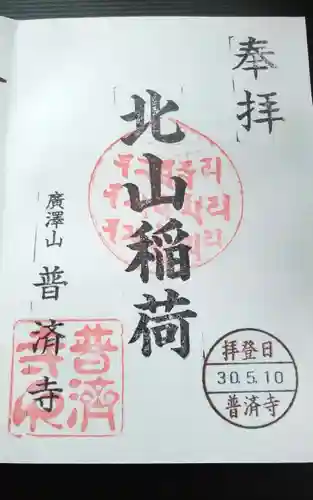 奉拝
北山稲荷
廣澤山
普済寺
普濟
寺印
拝登日
30.5.10
普済寺